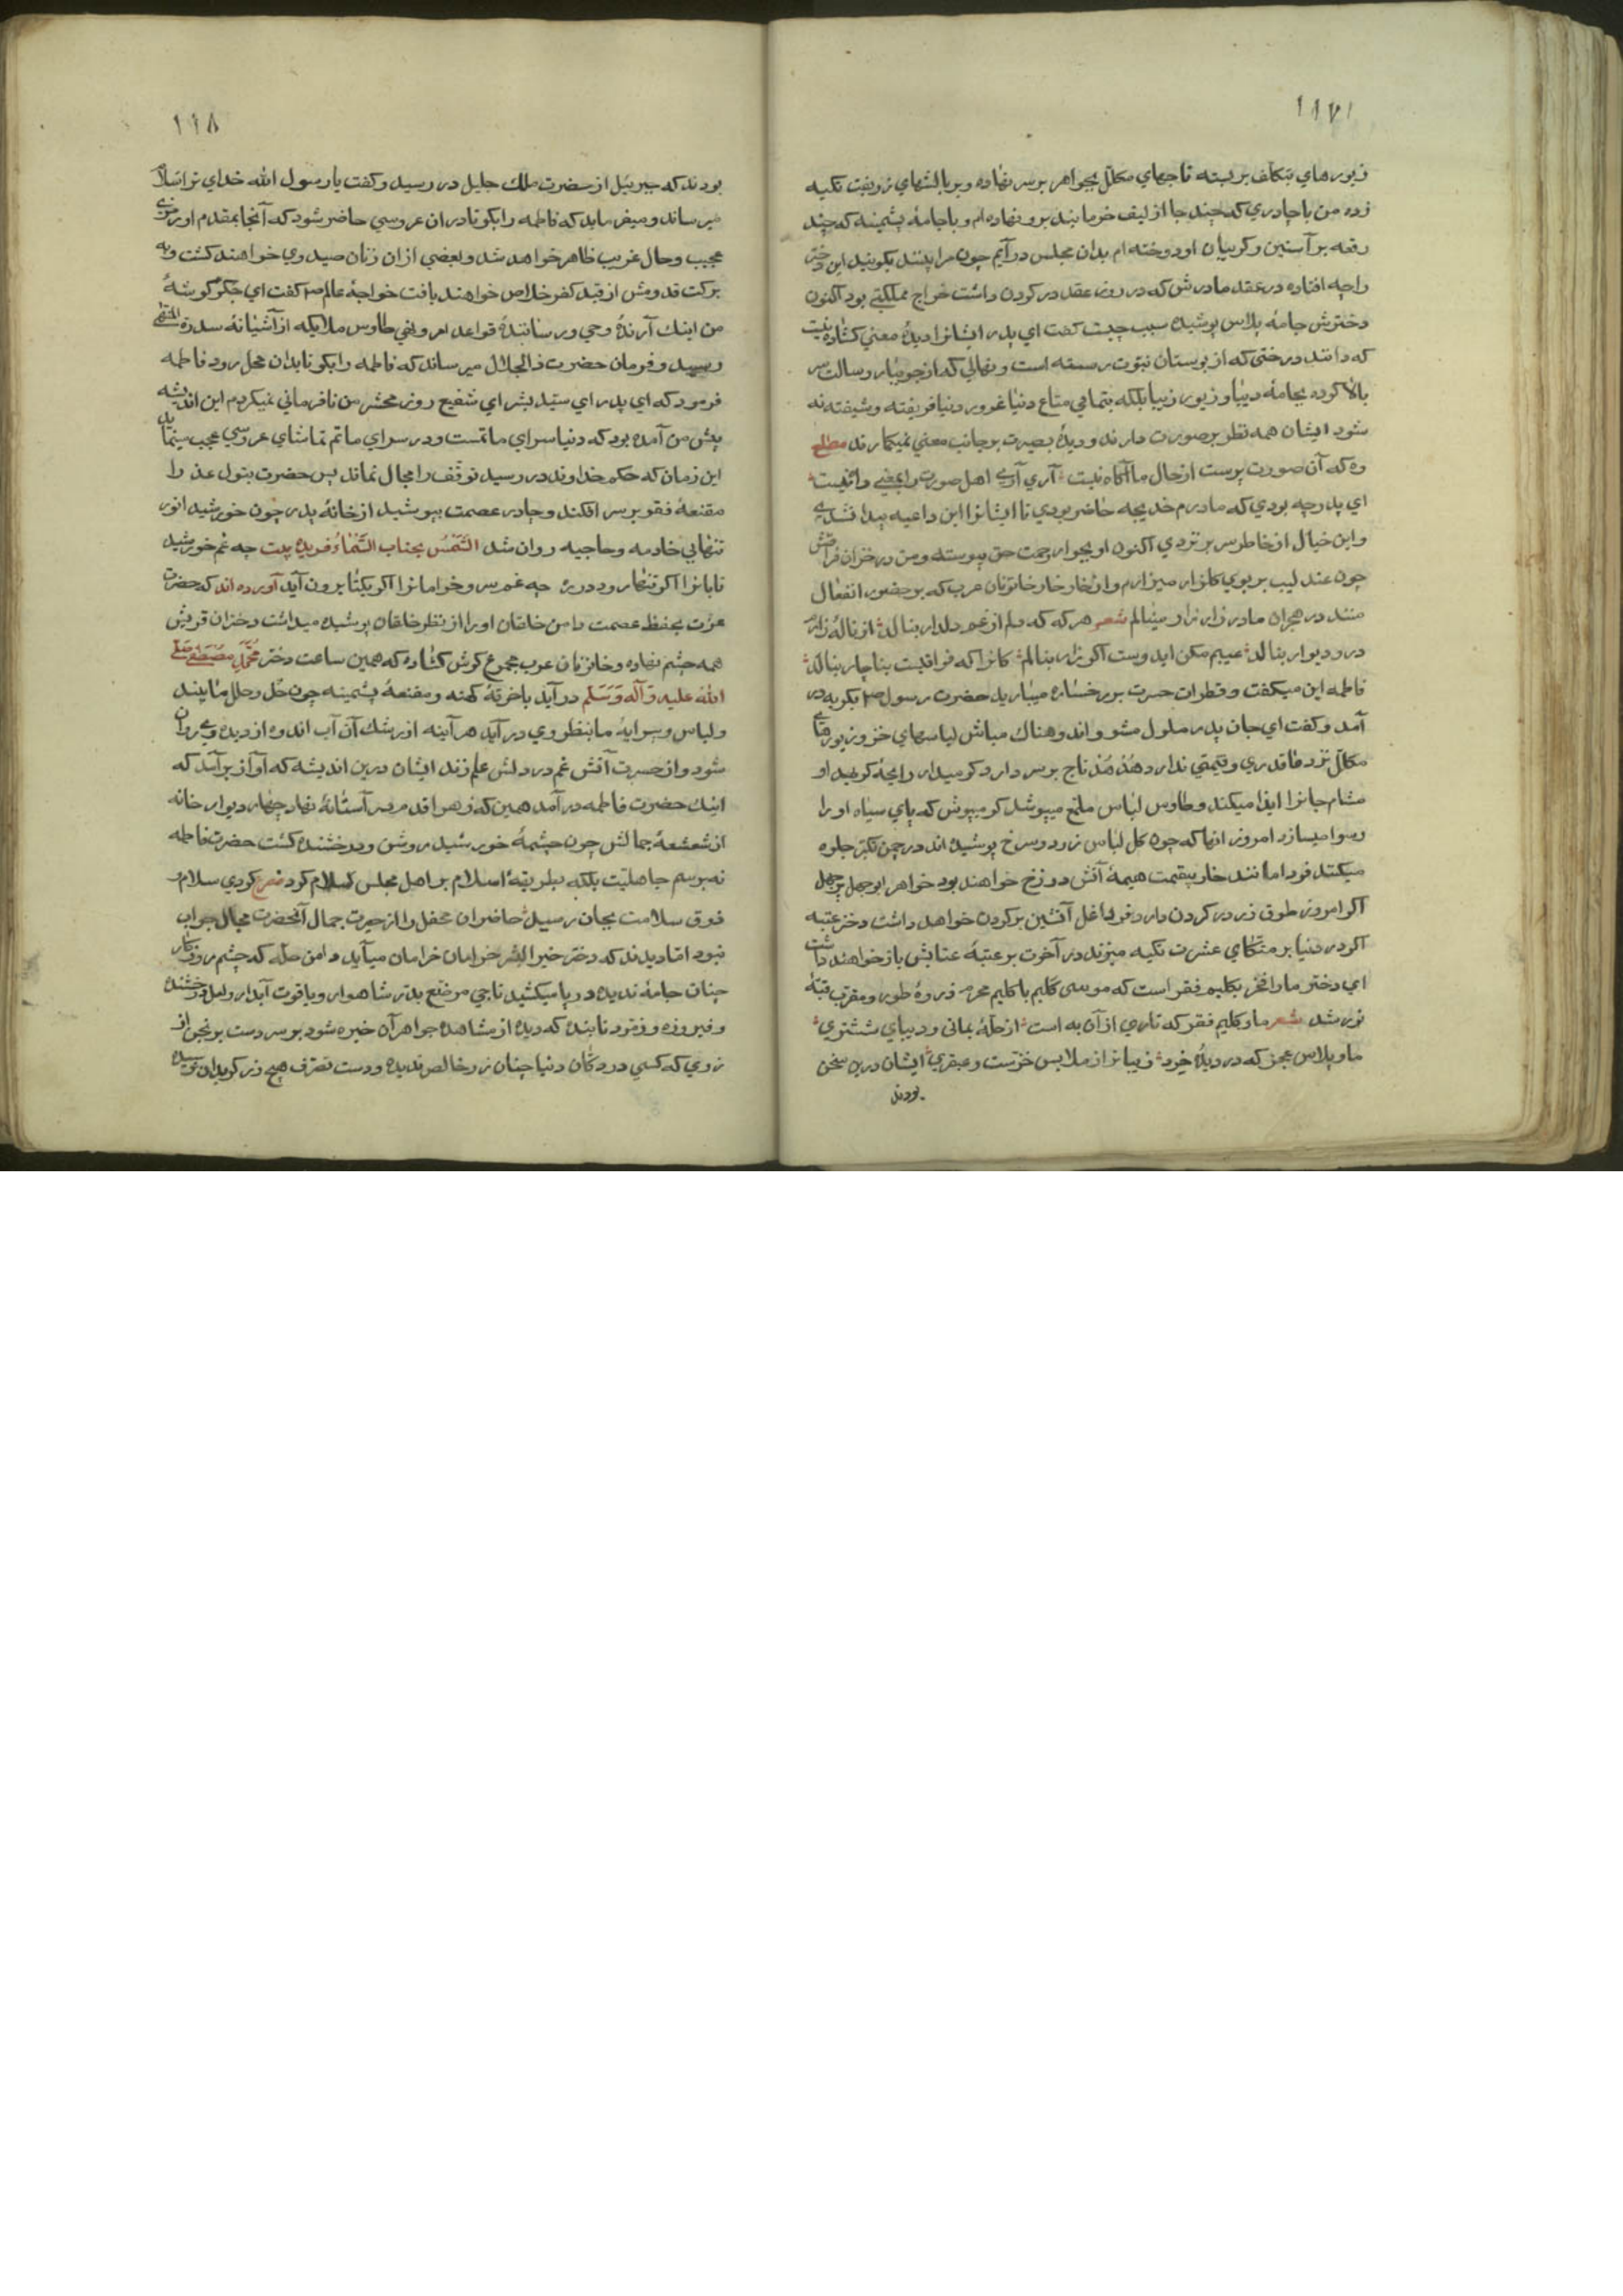 ۱۱۷
زیورهاي بتکلف بربسته تاجهاي مکلّل بجواهر بر سر نهاده و بر بالشهاي زربفت تکیه
زده من با چادري که چند جا از لیف خرما بند برو نهاده ام و با جامهٔ پشمینه که چند
رقعه بر آستین و کریبان او دوخته ام بدان مجلس در آیم چون مرا بینند بکویند این دختر
را چه افتاده در عقد مادرش که در روز عقد در کردن داشت خراج مملکتي بود اکنون
دخترش جامهٔ پلاس پوشیده سبب چیست کفت اي پدر ایشانرا دیدهٔ معني کشاده نیست
که دانند درختي که از بوستان نبوّت رسته است و نهالي که از جویبار رسالت سر
بالا کرده بجامهٔ دیبا و زیور زیبا بلکه بتمامي متاع دنیا غرور دنیا فریفته و شیفته نه
شود ایشان همه نظر بر صورت دارند و دیدهٔ بصیرت بر جانب معني نمیکمارند مطلع
وه که آن صورت پرست از حال ما آکاه نیست آري آري اهل صورت را بمعني راه نیست
اي پدر چه بودي که مادرم خدیجه حاضر بودي تا ایشانرا این داعیه پیدا نشدي
و این خیال از خاطر سر بر نزدي اکنون او بجوار رحمت حق پیوسته و من در خزان فراقش
چون عندلیب بر بوي کلزار میزارم و از خار خار خاتونان عرب که بر حضور انفعال
منند در هجران مادر زار زار مینالم شعر هر که که دلم از غم دلدار بنالد از نالهٔ زارم
در و دیوار بنالد عیبم مکن اید وست اکر زار بنالم کانرا که فراقیست بناچار بنالد
فاطمه این میکفت و قطرات حسرت بر رخساره میبارید حضرت رسول صم بکریه در
آمد و کفت اي جان پدر ملول مشو و اندوهناك مباش لباسهاي خز و زیورهاي
مکلّل نزد ما قدري و قیمتي ندارد هُدهُد تاج بر سر دارد کو میدار رایحهٔ کریهه او
مشام جانرا ایذا میکند و طاوس لباس ملمّع میپوشد کو میپوش که پاي سیاه او را
رسوا میسازد امروز انها که چون کل لباس زرد و سرخ پوشیده اند در چمن تکبّر جلوه
میکنند فردا مانند خار بیقیمت هیمهٔ آتش دوزخ خواهند بود خواهر ابوجهل پر جهل
اکر امروز طوق زر در کردن دارد فردا غل آتشین بر کردن خواهد داشت دختر عتبه
اکر در دنیا بر متکاي عشرت تکیه میزند در آخرت بر عتبهٔ عتابش باز خواهند داشت
اي دختر ما را فخر بکلیم فقر است که موسی کلیم با کلیم محرم ذروهٔ طور و مقرّب قبّهٔ
نور شد شعر ما و کلیم فقر که تاري ازآن به است از حلّهٔ یماني و دیباي ششتري
ما و پلاس عجز که در دیدهٔ خرد زیباتر از ملابس خزست و عبقري ایشان درین سخن
بودند
۱۱۸
بودند که جبرئیل از حضرت ملك جلیل در رسید و کفت یا رسول الله خداي ترا سلام
میرساند و میفرماید که فاطمه را بکو تا دران عروسي حاضر شود که آنجا بمقدم او رمزي
عجیب و حال غریب ظاهر خواهد شد و بعضي ازان زنان صید وي خواهند کشت و به
برکت قدومش از قید کفر خلاص خواهند یافت خواجهٔ عالم صم کفت اي جکر کوشهٔ
من اینك آرندهٔ وحي و رسانندهٔ قواعد امر و نهي طاوس ملایکه از آشیانهٔ سدرة المنتهی
رسید و فرمان حضرت ذالجلال میرساند که فاطمه را بکو تا بدان محل رود فاطمه
فرمود که اي پدر اي سیّد بشر اي شفیع روز محشر من نافرماني نمیکردم این اندیشه
پیش من آمده بود که دنیا سراي ماتمست و در سراي ماتم تماشاي عروسي عجب مینماید
این زمان که حکم خداوند در رسید توقّف را مجال نماند پس حضرت بتول عذرا
مقنعهٔ فقر بر سر افکند و چادر عصمت بپوشید از خانهٔ پدر چون خورشید انور
تنهابي خادمه و حاجبه روان شد الشَّمسُ بجناب السَّماءِ فریدة بیت چه غم خورشید
تابانرا اکر تنها رود در ره چه غم سرو خرامانرا اکر یکتا برون آید آورده اند که حضرت
عزّت بحفظ عصمت دامن خاتقان او را از نظر خلقان پوشیده میداشت دختران قریش
همه چشم نهاده و خاتونان عرب مجموع کوش کشاده که همین ساعت دختر مُحَمَّدِ مُصطفَی صَلَّی
اللهُ عَلیه وَآلَه وَسَلَّم در آید با خرقهٔ کهنه و مقنعهٔ پشمینه چون حُلي و حلل ما بیند
و لباس و پیرایهٔ ما بنظر وي در آید هر آینه از رشك آن آب اندوه از دیدهٔ وي روان
شود و از حسرت آتش غم در دلش علم زند ایشان درین اندیشه که آواز برآمد که
اینك حضرت فاطمه در آمد همین که زهرا قدم بر آستانهٔ نهاد چهار دیوار خانه
از شعشعهٔ جمالش چون چشمهٔ خورشید روشن و درخشنده کشت حضرت فاطمه
نه برسم جاهلیّت بلکه بطریقهٔ اسلام بر اهل مجلس سلام کرد مصرع کردي سلام و
ذوق سلامت بجان رسید حاضران محفل را از حیرت جمال آنحضرت مجال جواب
نبود امّا دیدند که دختر خیر البشر خرامان خرامان میآید دامن حلّه که چشم روزکار
چنان جامهٔ ندیده در پا میکشید تاجي مرصّع بدّر شاهوار و یاقوت آبدار و لعل درخشنده
و فیروزه و زمّرد تابنده که دیده از مشاهدهٔ جواهر آن خیره شود بر سر دست برنجن از
زري که کسي در دکان دنیا چنان زر خالص ندیده و دست تصرّف هیچ زرکر بدان نرسیده